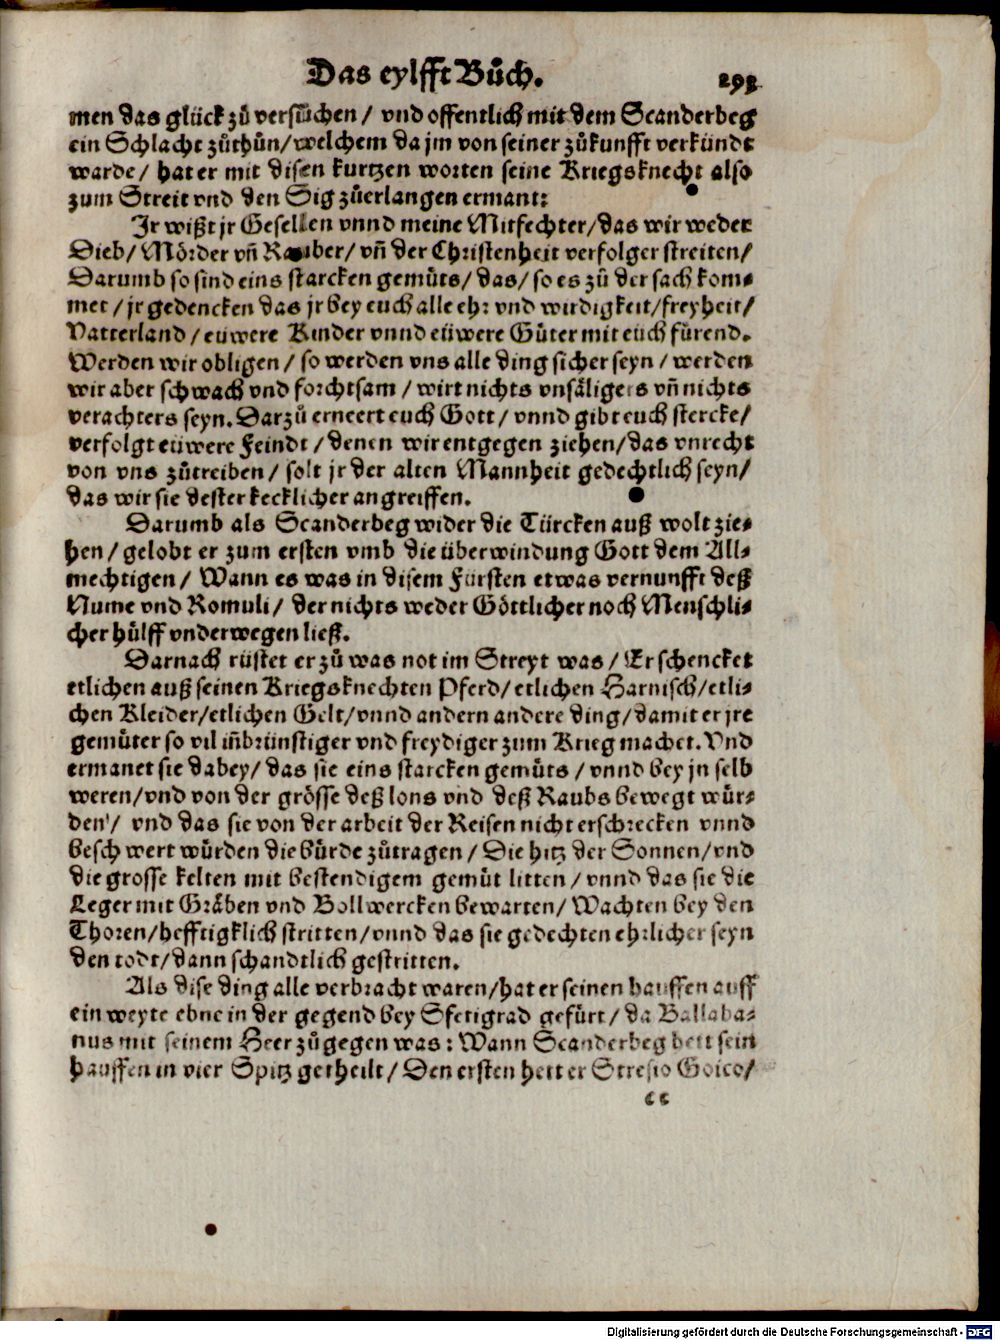 Das eylfft Bůch. 293
men das glück zů versůchen / vnd offentlich mit dem Scanderbeg
ein Schlacht zůthůn/welchem da jm von seiner zůkunfft verkündt
warde / hat er mit disen kurtzen worten seine Kriegsknecht also
zum Streit vnd den Sig zůerlangen ermant:
Jr wißt jr Gesellen vnnd meine Mitfechter/das wir weder
Dieb/ Mörder vñ Rauber/ vñ der Christenheit verfolger streiten/
Darumb so sind eins starcken gemüts/das/so es zů der sach kom⸗
met /jr gedencken das jr bey euch alle ehr vnd wirdigkeit/freyheit/
Vatterland / euwere Kinder vnnd eüwere Güter mit eüch fürend.
Werden wir obligen / so werden vns alle ding sicher seyn / werden
wir aber schwach vnd forchtsam / wirt nichts vnsäligers vñ nichts
verachters seyn. Darzů erneert euch Gott / vnnd gibt euch stercke/
verfolgt eüwere Feindt / denen wir entgegen ziehen/das vnrecht
von vns zůtreiben / solt jr der alten Mannheit gedechtlich seyn/
das wir sie dester kecklicher angreiffen.
Darumb als Scanderbeg wider die Türcken auß wolt zie⸗
hen / gelobt er zum ersten vmb die überwindung Gott dem All⸗
mechtigen / Wann es was in disem Fürsten etwas vernunfft deß
Nume vnd Romuli / der nichts weder Göttlicher noch Menschli⸗
cher hülff vnderwegen ließ.
Darnach rüstet er zů was not im Streyt was / Er schencket
etlichen auß seinen Kriegsknechten Pferd/etlichen Harnisch/etli⸗
chen Kleider/etlichen Gelt/vnnd andern andere ding/damit er jre
gemüter so vil inbrünstiger vnd freydiger zum Krieg machet. Vnd
ermanet sie dabey/ das sie eins starcken gemüts / vnnd bey jn selb
weren/vnd von der grösse deß lons vnd deß Raubs bewegt wür⸗
den / vnd das sie von der arbeit der Reisen nicht erschrecken vnnd
beschwert würden die bürde zůtragen / Die hitz der Sonnen/vnd
die grosse kelten mit bestendigem gemüt litten / vnnd das sie die
Leger mit Gräben vnd Bollwercken bewarten/ Wachten bey den
Thoren/hefftigklich stritten/vnnd das sie gedechten ehrlicher seyn
den todt/dann schandtlich gestritten.
Als dise ding alle verbracht waren/hat er seinen hauffen auff
ein weyte ebne in der gegend bey Sfetigrad gefürt/da Ballaba⸗
nus mit seinem Heer zůgegen was: Wann Scanderbeg hett sein
hauffen in vier Spitz getheilt / Den ersten hett er Stresio Goico/
cc
Digitalisierung gefördert durch die Deutsche Forschungsgemeinschaft - DFG